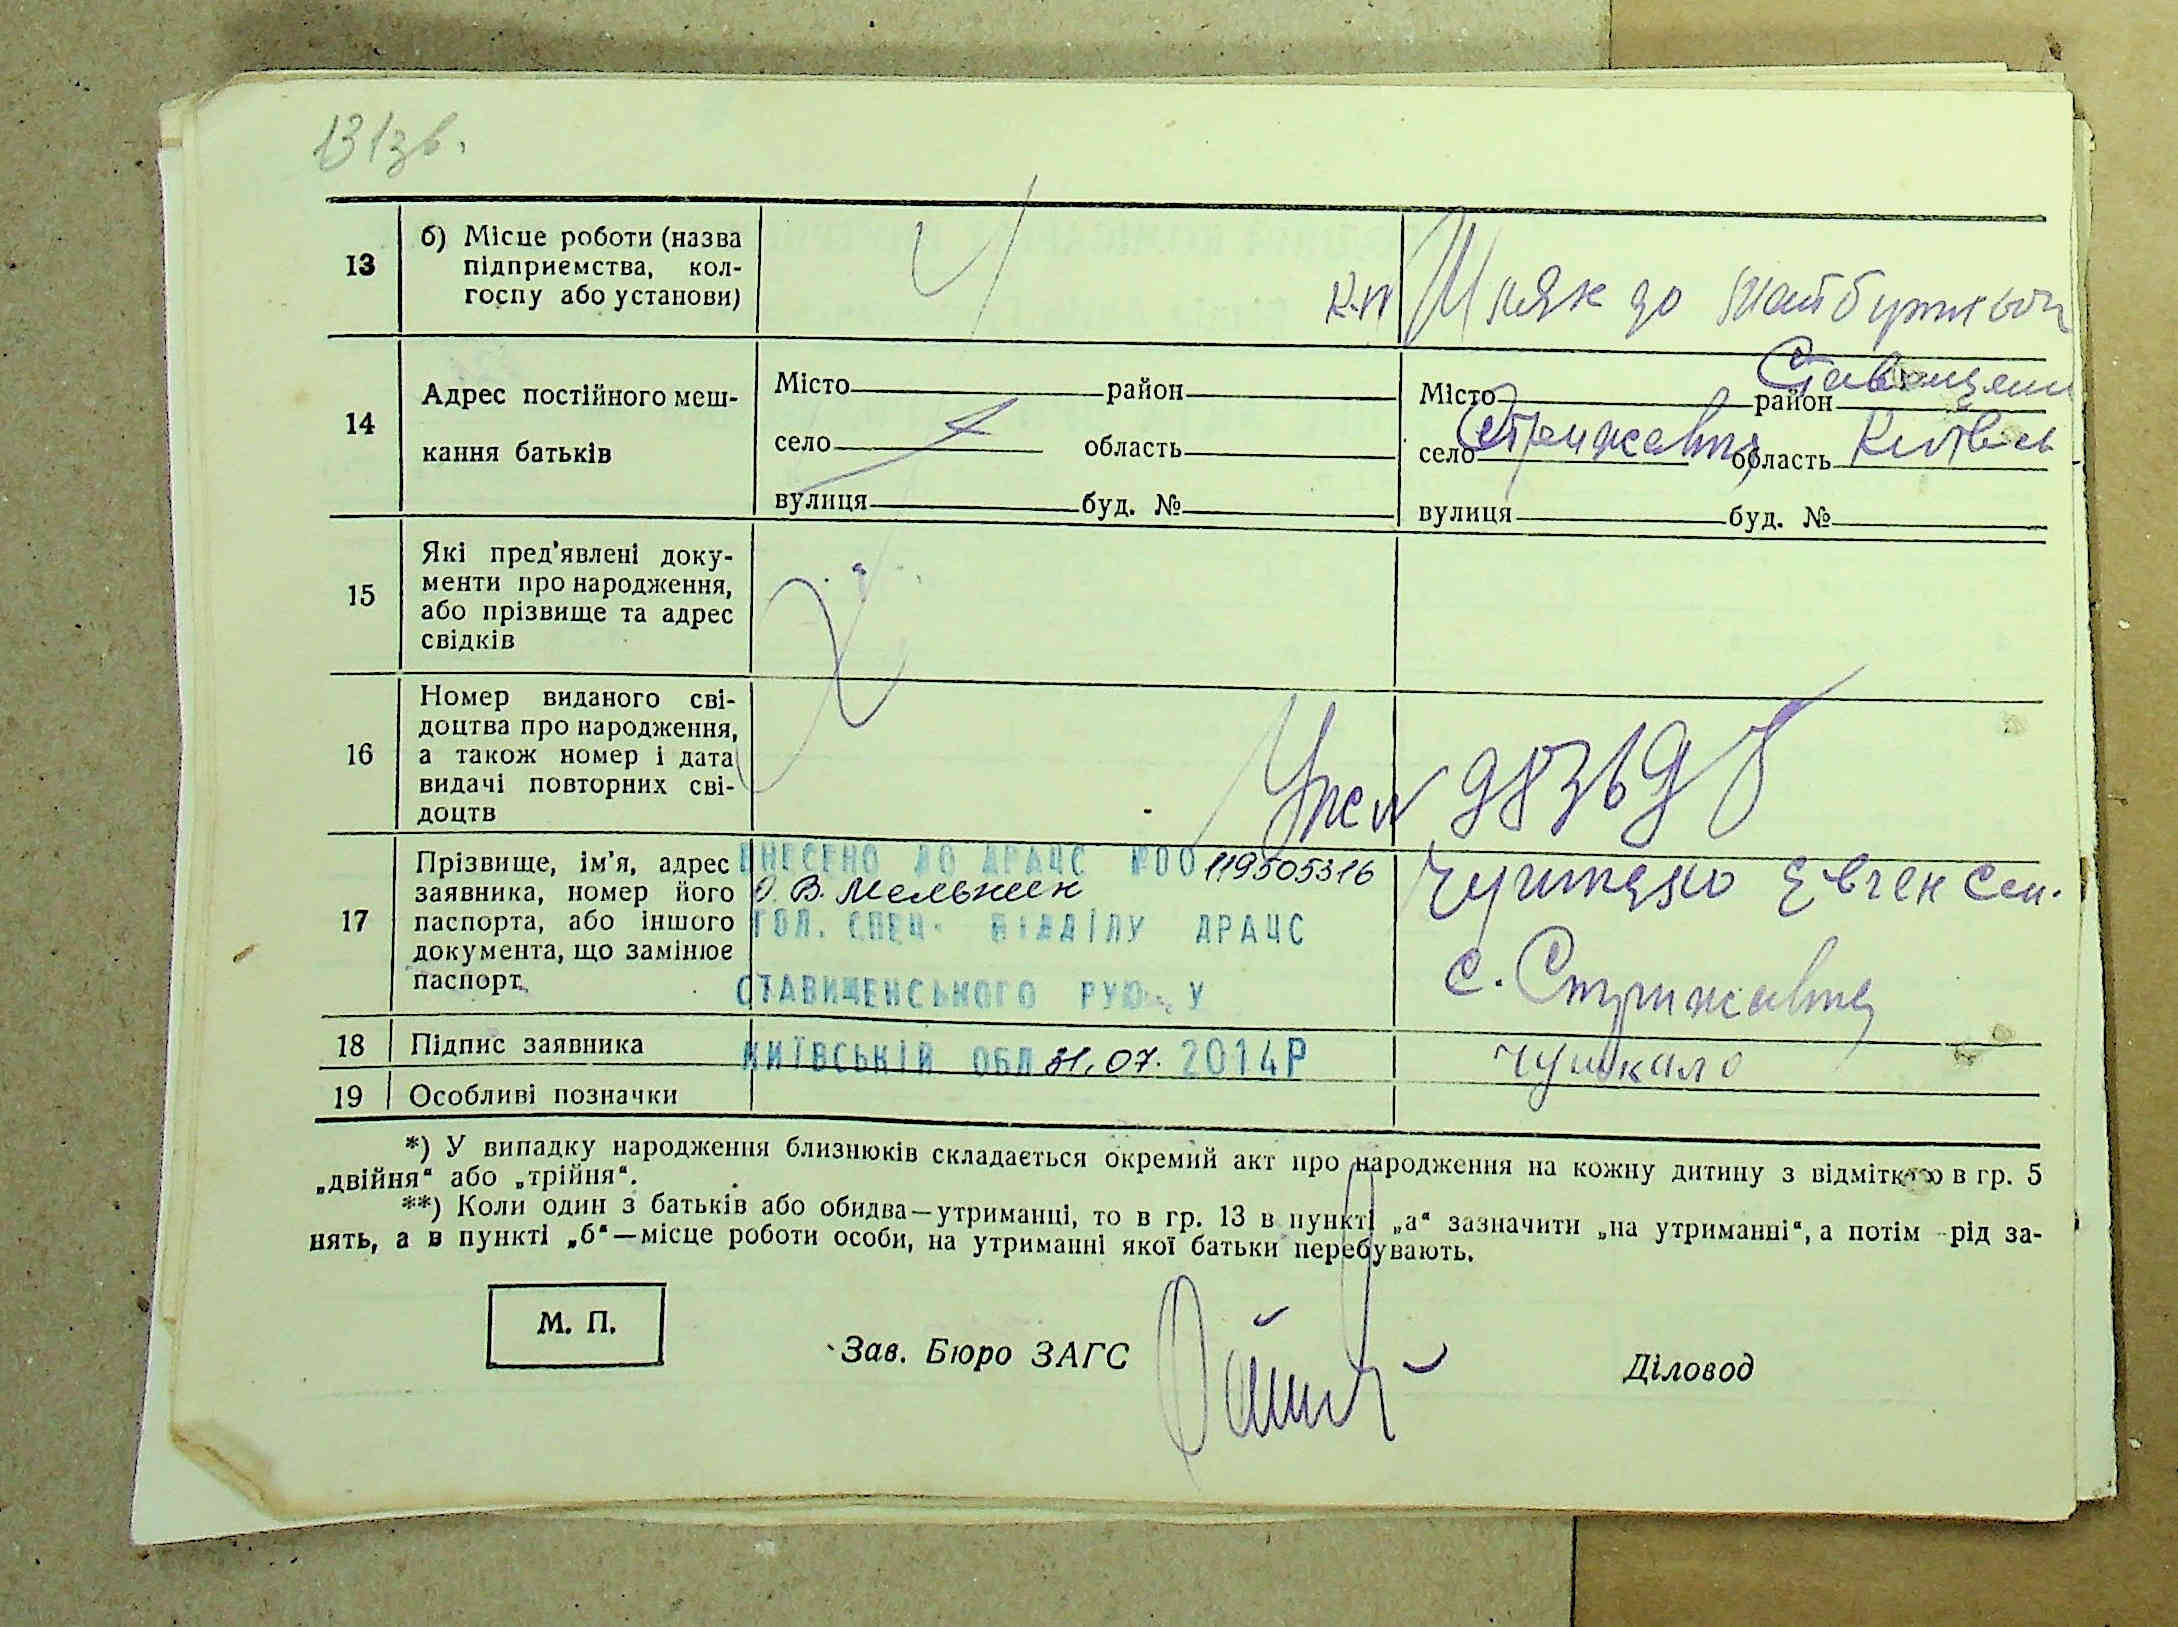 131зв.
13
б) Місце роботи (назва
підприємства, кол-
госпу або установи)
Шлях до
14
Адрес постійного меш-
кання батьків
Місто район
село область
вулиця буд. №
Місто район
село Стрижавка область Київськ
вулиця буд. №
15
Які пред'явлені доку-
менти про народження,
або прізвище та адрес
свідків
16
Номер виданого сві-
доцтва про народження,
а також номер і дата
видачі повторних сві-
доцтв
17
Прізвище, ім'я, адрес
заявника, номер його
паспорта, або іншого
документа, що замінює
паспорт
ВНЕСЕНО ДО ДРАЦС №00119505316
О. В. Мельник
ГОЛ. СПЕЦ. ВІДДІЛУ ДРАЦС
СТАВИЩЕНСЬКОГО РУЮ У
КИЇВСЬКІЙ ОБЛ 31.07. 2014Р
с. Стрижавка
18
Підпис заявника
19
Особливі позначки
*) У випадку народження близнюків складається окремий акт про народження на кожну дитину з відміткою в гр. 5
„двійня“ або „трійня“.
**) Коли один з батьків або обидва—утриманці, то в гр. 13 в пункті „а“ зазначити „на утриманні“, а потім рід за-
нять, а в пункті „б“—місце роботи особи, на утриманні якої батьки перебувають.
М. П.
Зав. Бюро ЗАГС
Діловод